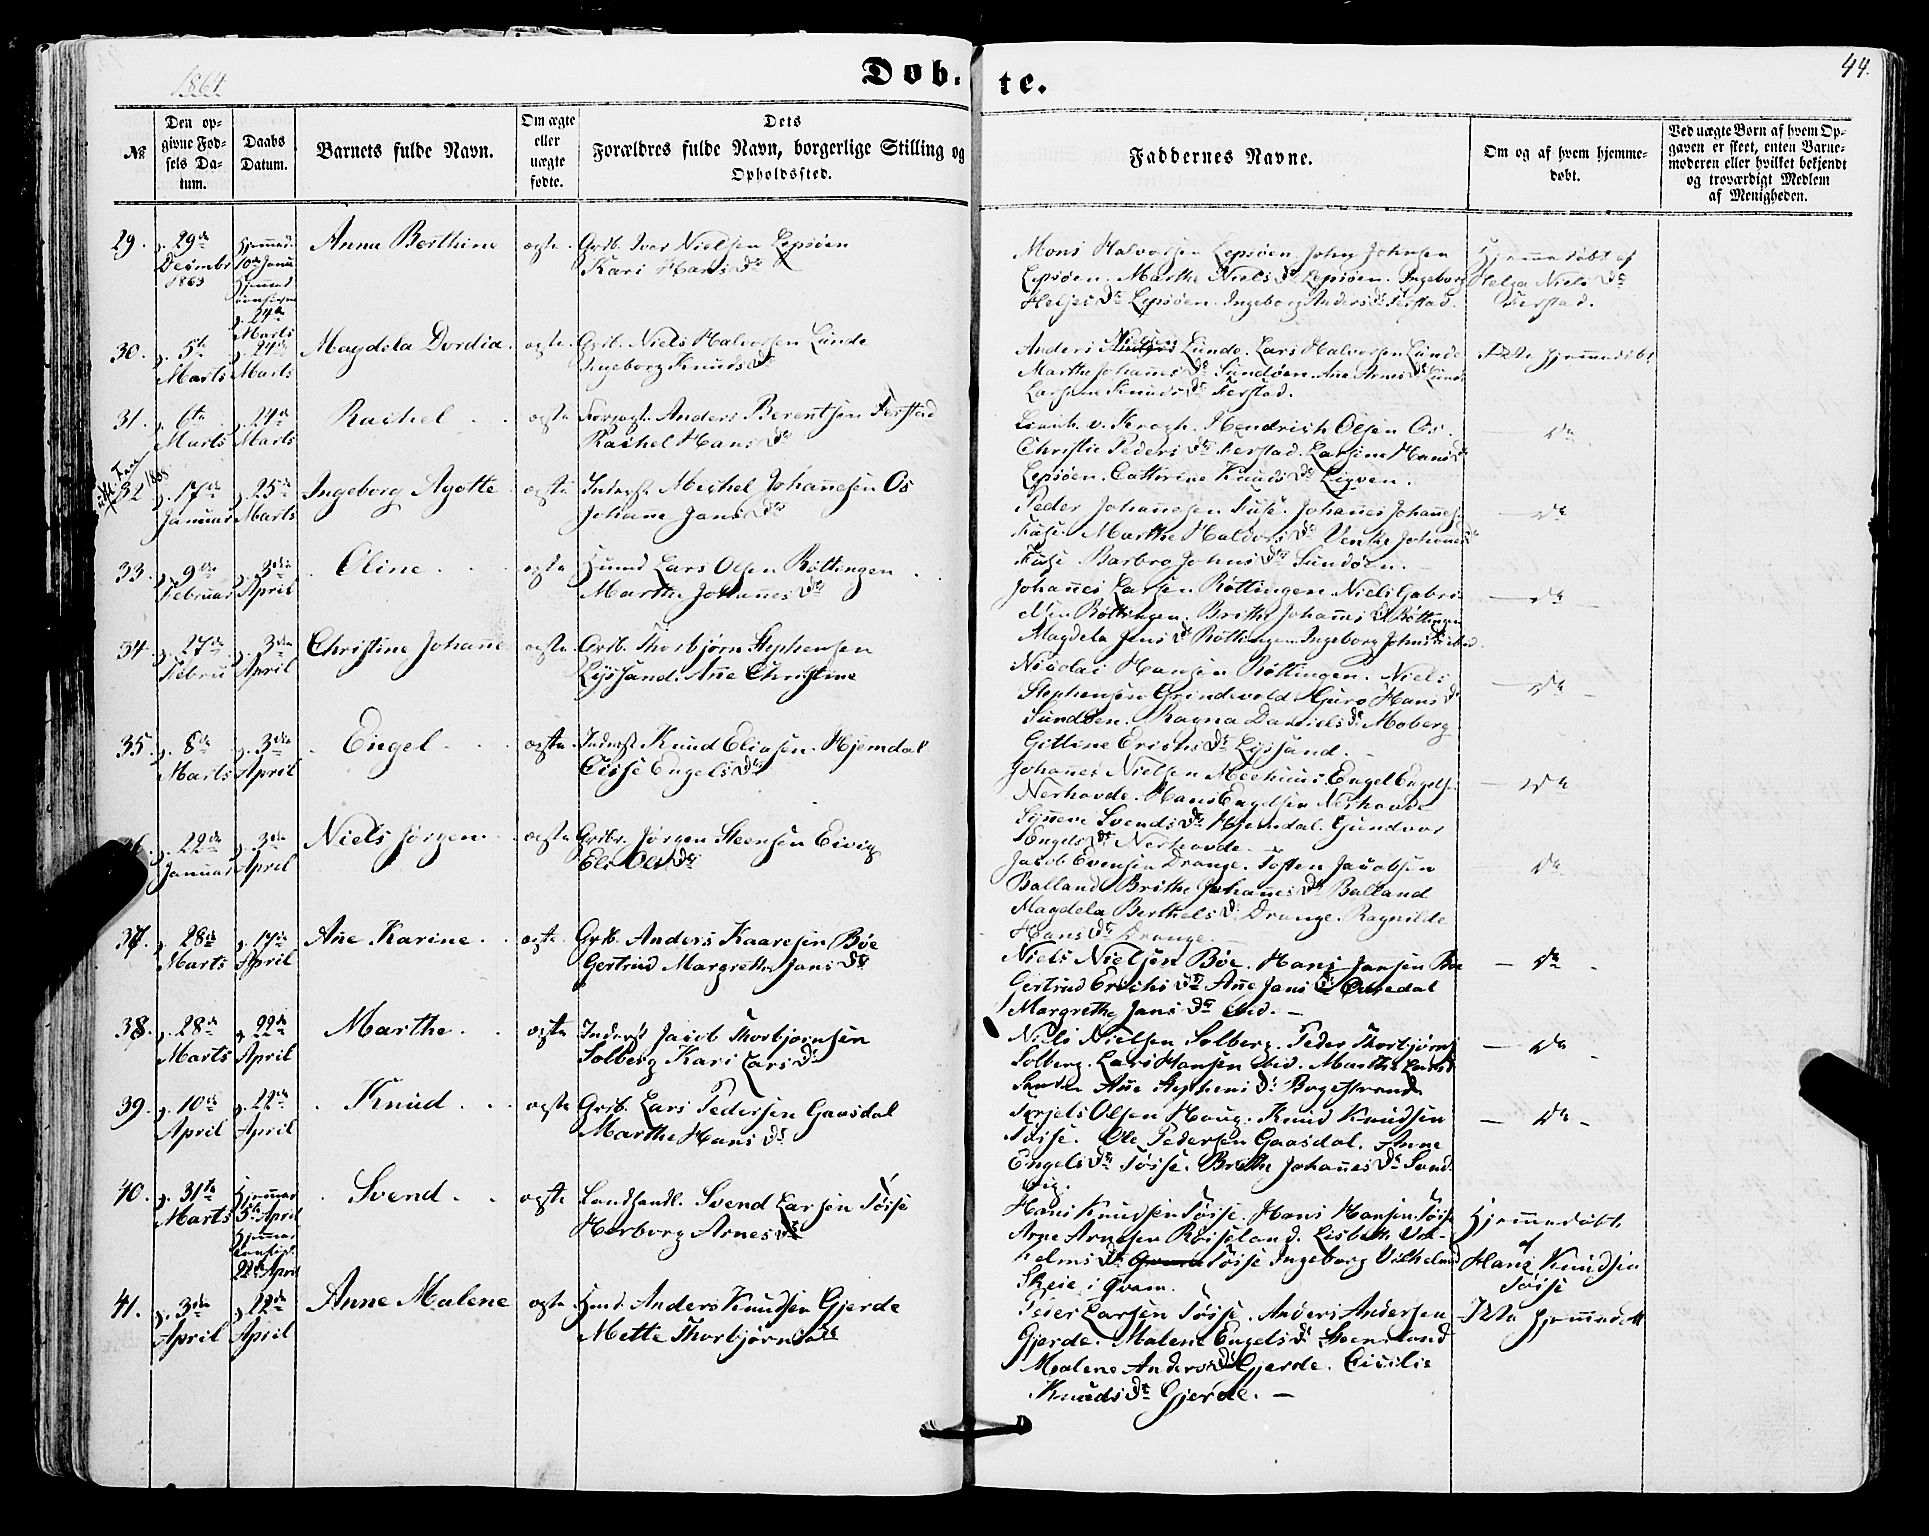 1864
Døb-
te.
44.
№
Den op-
givne Fød-
sels Da-
tum.
Daabs
Datum.
Barnets fulde Navn.
Om ægte
eller
uægte
fødte.
Dets
Forældres fulde Navn, borgerlige Stilling og
Opholdssted.
Faddernes Navne.
Om og af hvem hjemme-
døbt.
Ved uægte Børn af hvem Op-
gaven er skeet, enten Barne-
moderen eller hvilket bekjendt
og troværdigt Medlem
af Menigheden.
29.
29de
Decembr
1863
Anna Berthine
ægte
Grdb. Iver Nielsen Lepsøen
Kari Hans Dr
Mons Halvorsen Lepsøen John Johnsen
Lepsøen. Marthe Niels Dr Lepsøen. Ingeborg
Helges Dr Lepsøen. Ingeborg Anders Dr Ferstad.
Hjemmedøbt af
Helga Niels Dr
Ferstad.
30.
5te
Marts
24de
Marts
Magdela Dordia.
ægte
Grdb. Niels Halvorsen Lunde
Ingeborg Knuds Dr
Anders Nielsen Lunde. Lars Halvorsen Lunde
Marthe Johannes Dr Sundøen. Ane Arnes Dr Lunde
Knuds Dr Ferstad.
Ikke hjemmedøbt
31.
6te
Marts
24de
Marts
Rachel
ægte
Anders Berentsen Ferstad
Rachel Hans Dr
v. Krogh. Hendrich Olsen Os.
Christie Peders Dr Ferstad. Larsine Hans Dr
Lepsøen. Catterine Knuds Dr Ligven.
Do
32
17de
Januar
25de
Marts
Ingeborg Agotte
ægte
Inderst Michel Johannesen Os
Johanne Jans Dr
Peder Johannesen Fuse. Johannes Johannes
Fuse Marthe Haldors Dr Venke Johannes Dr
Fuse Barbro Johns Dr Sundøen.
Do
33.
9de
Februar
3die
April
Oline
ægte
Huusmd Lars Olsen Røttingen
Marthe Johannes Dr
Johannes Larsen Røttingen. Niels Gabri-
elsen Røttingen. Brithe Johannes Dr Røttingen
Magdela Jens Dr Røttingen. Ingeborg Johns Dr ibid.
Do
34.
27de
Febru
3die
April
Christine Johanne
ægte
Grdb. Thorbjørn Stephensen
Lyssand. Anne Christine
Nicolai Hansen Røttingen. Niels
Stephensen Grindevold. Guro Hans Dr
Sundøen. Ragna Daniels Dr Moberg
Gittine Erichs Dr Lyssand.
Do
35.
8de
Marts
3die
April
Engel
ægte
Inderst Knud Eliasen. Hjemdal
Cisse Engels Dr
Johannes Nielsen Mechuus. Engel Engels.
Nerhovde. Hans Engelsen Nerhovde
Synneve Svends Dr Hjemdal. Gundvor
Engels Dr Nerhovde.
Do
22de
Januar
3die
April
Niels Jørgen
ægte
Grdbr. Jørgen Steensen Eivig
Eli Ols Dr
Jacob Evensen Drange. Tosten Jacobsen
Balland Brithe Johannes Dr Balland
Magdela Berthels Dr Drange. Ragnilde
Hans Dr Drange.
Do
37.
28de
Marts
17de
April
Ane Karine
ægte
Grdb. Anders Kaaresen Bøe
Gertrud Margrethe Jans Dr
Niels Nielsen Bøe. Hans Jansen Bøe
Gertrud Erichs Dr Anne Jans Dr
Margrethe Jans Dr ibid.
Do
38.
28de
Marts
22de
April
Marthe
ægte
Inderst Jacob Thorbjørnsen
Solberg Kari Lars Dr
Niels Nielsen Solberg. Peder Thorbjørns
Solberg. Lars Hansen ibid. Marthe Lars Dr
Anne Stephens Dr Bogestrand
Do
39.
10de
April
22de
April
Knud
ægte
Grdb. Lars Pedersen Gaasdal
Marthe Hans Dr
Terjels Olsen Houg. Knud Knudsen
Tøsse. Ole Pedersen Gaasdal. Anne
Engels Dr Tøsse. Brithe Johannes Dr Sand-
vig.
Do
40.
31te
Marts
Hjemme
5te April
22de April
Svend
ægte
Landhandl. Svend Larsen Tøsse
Herborg Arnes Dr
Hans Knudsen Tøsse. Hans Hansen Tøsse
Arne Arnesen Røiseland. Lisbeth Vil-
helms Dr Tøsse Ingeborg Vilhelms
Skeie i Qvam.
Hjemmedøbt
af
Hans Knudsen
Tøsse
41.
3die
April
22de
April
Anne Malene
ægte
Huusd. Anders Knudsen Gjerde
Mette Thorbjørns Dr
Peter Larsen Tøsse. Anders Andersen
Gjerde. Malene Engels Dr Steensland
Malene Anders Dr Gjerde. Cicilie
Knuds Dr Gjerde.
Ikke hjemmedøbt